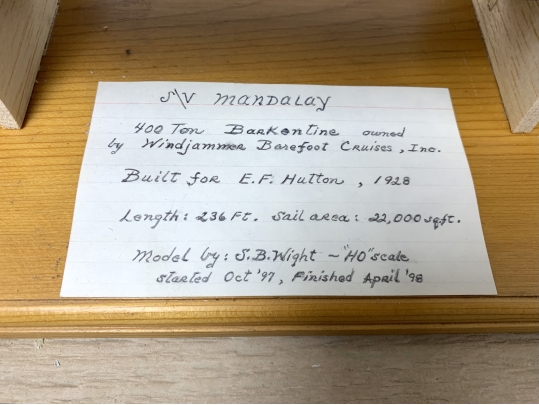 S\V MANDALAY
400 Ton Barkentine owned
by Windjammer Barefoot Cruises, Inc.
Built for E.F. Hutton, 1928
Length: 236 Ft. Sail area: 22,000 sq.ft.
Model by: S.B. Wight ~ "HO" scale
started Oct '97, Finished April '98